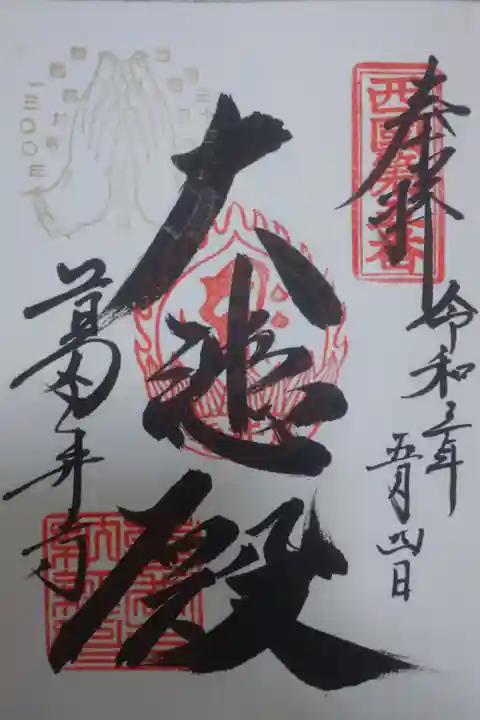 奉拝
西国第五番
令和三年
五月四日
大悲殿
葛井寺
一三〇〇年